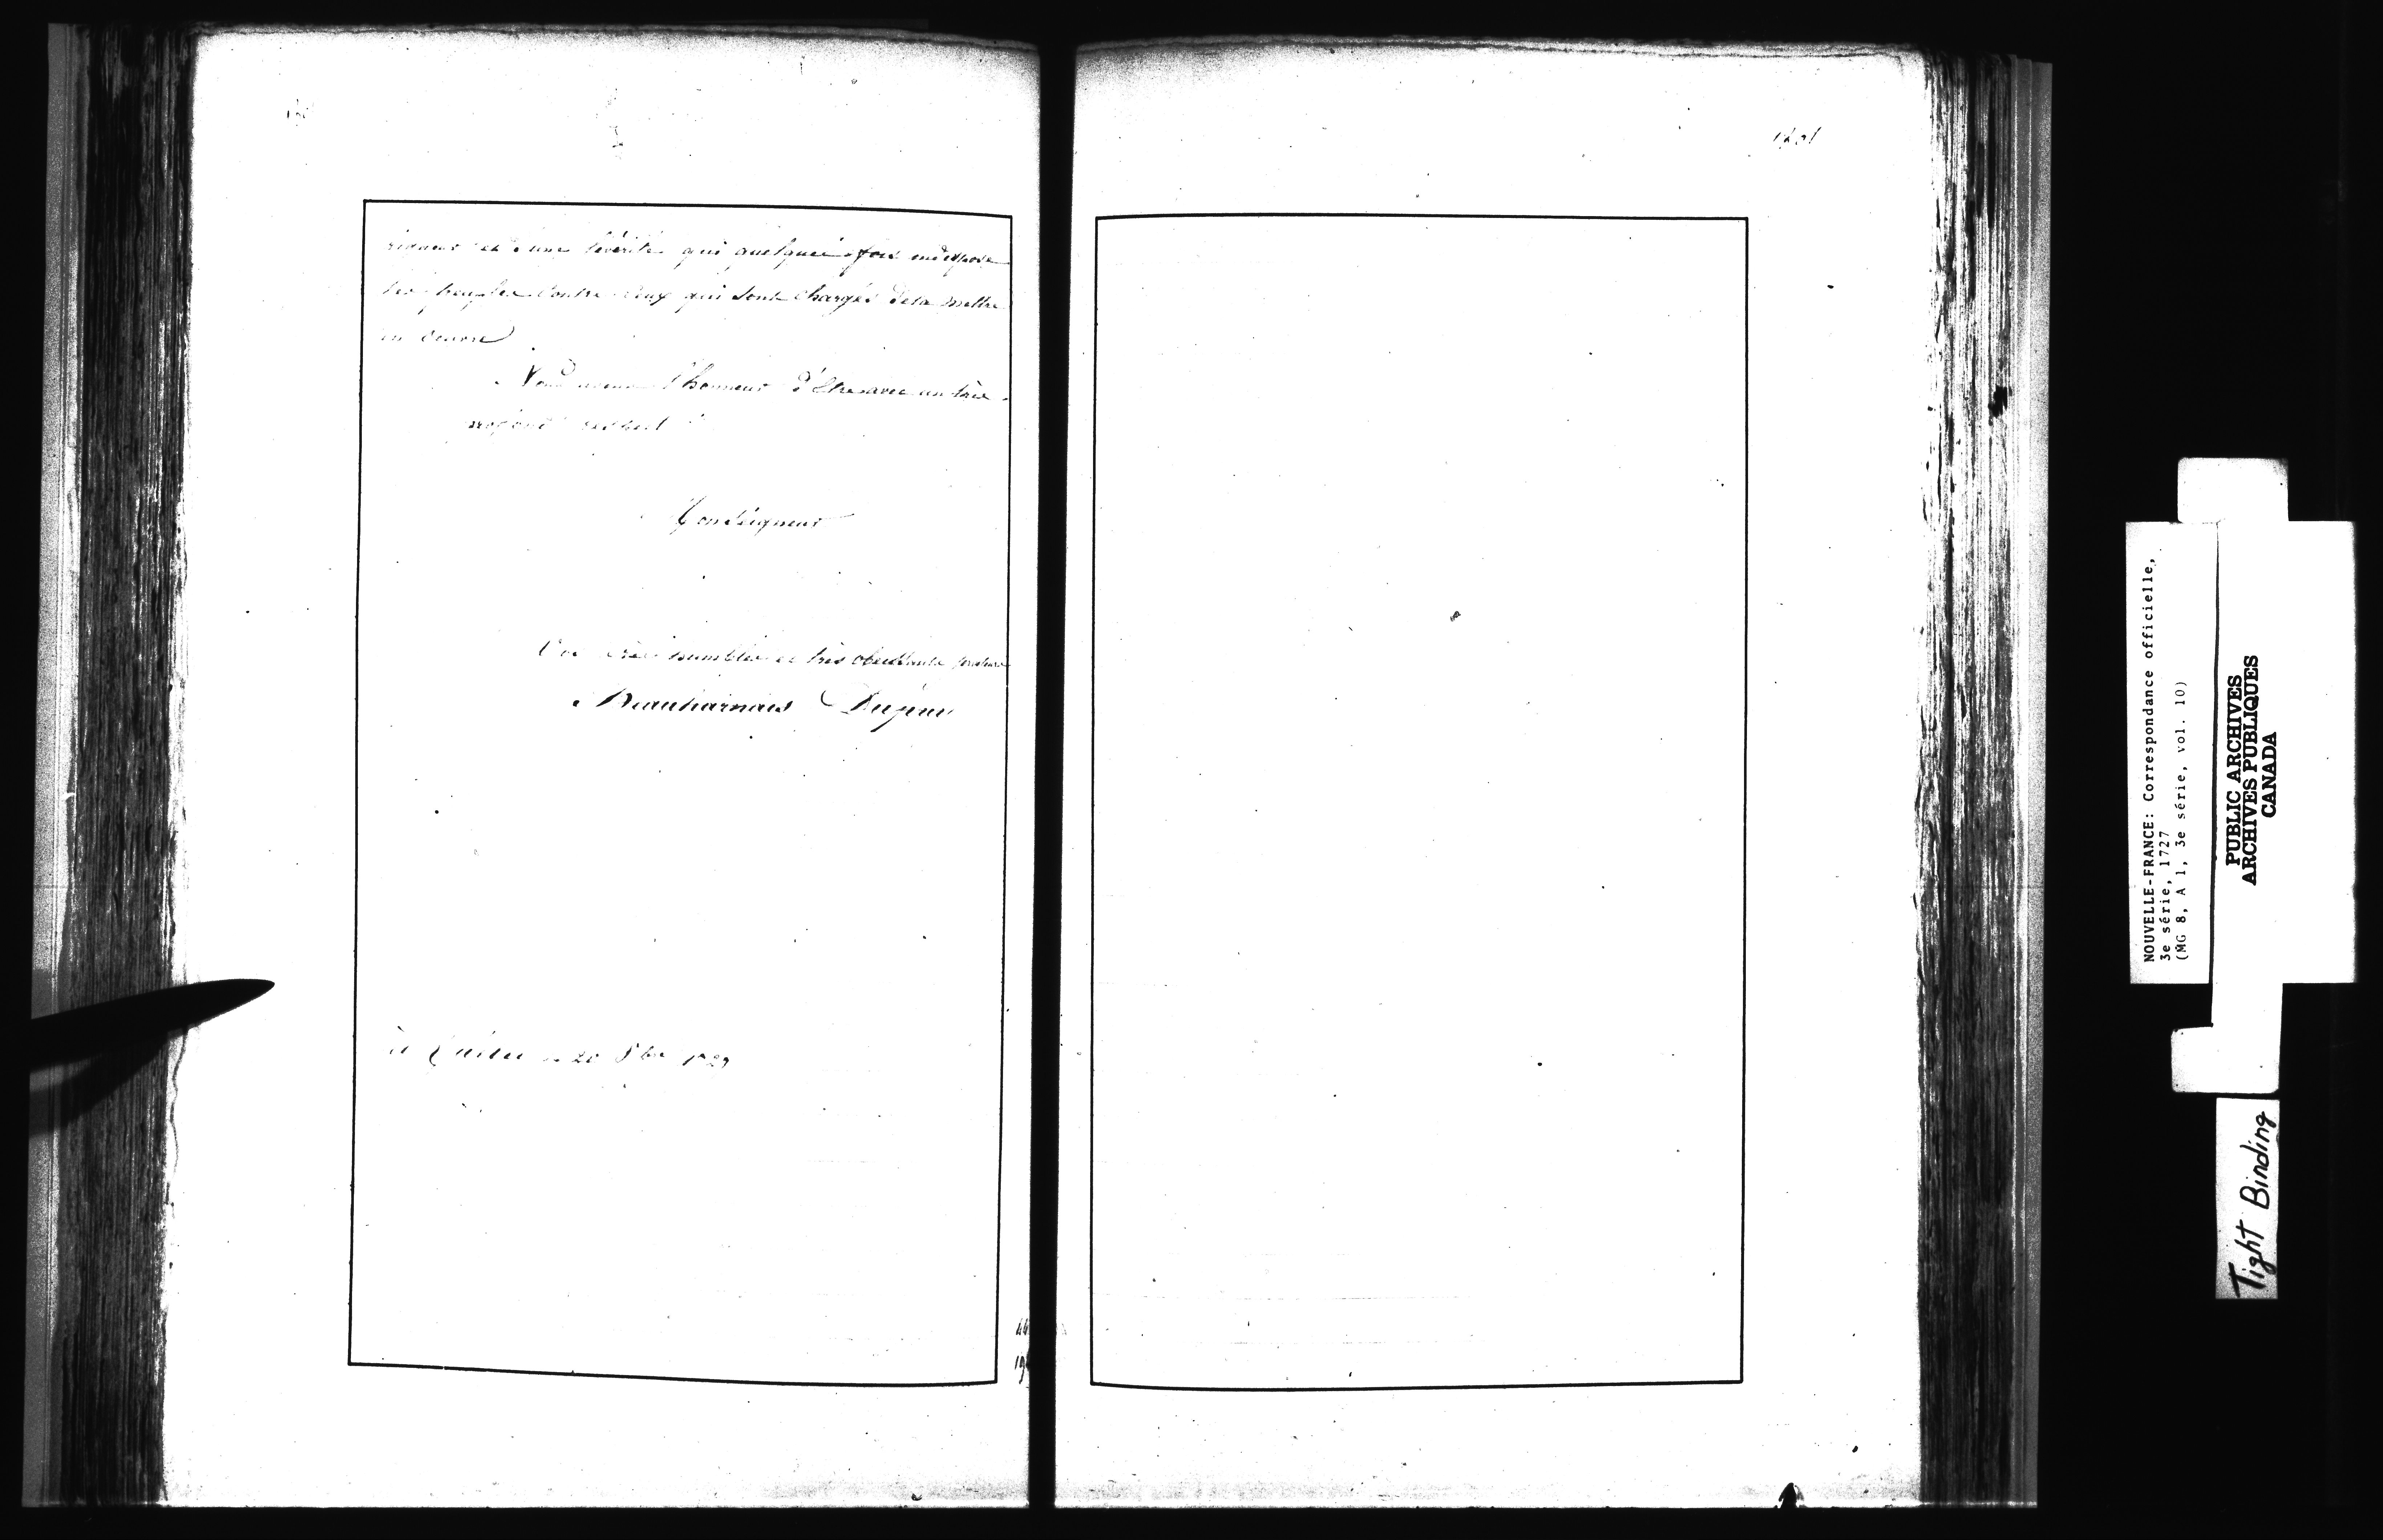 rigueur et d'une sévérité qui quelques fois indispose
les peuples contre ceux qui sont chargés dela mettre
en œuvre
Nous avons l'honneur d'Etre avec un très
profond respect
Monseigneur
Vos très humbles et très obeissants
Beauharnais Dupuy
à Québec le 20 8bre 1727
NOUVELLE-FRANCE: Correspondance officielle,
3e série, 1727
(MG 8, A 1, 3e série, vol. 10)
PUBLIC ARCHIVES
ARCHIVES PUBLIQUES
CANADA
Tight Binding